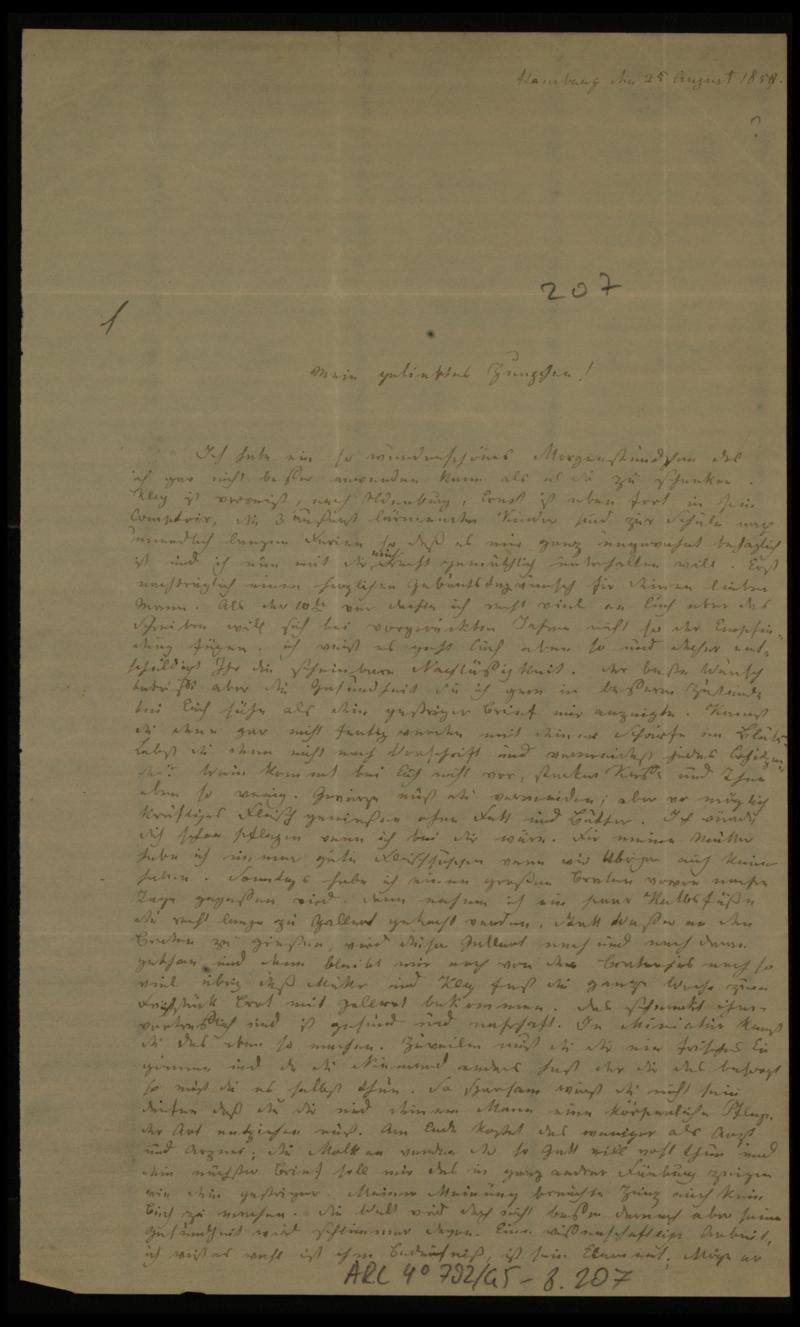 Hamburg den 25 August 1859.
?
207
1
Mein geliebtes Zunzchen!
Ich habe ein so wunderschönes Morgenstündchen das
ich gar nicht besser anwenden kann als es dir zu schenken.
Kley ist verreist, nach Oldenburg, Ernst ist eben fort in sein
Comptoir, die 3 äußerst lärmenden Kinder sind zur Schule nach
unendlich langen Ferien so daß es mir ganz ungewohnt behaglich
ist und ich nun mit dir mich recht gemüthlich unterhalten will. Erst
nachträglich einen herzlichen Geburtsdagwunsch für deinen lieben
Mann. Als der 10te war dachte ich recht viel an Euch aber das
Schreiben will sich bei vorgerückten Jahren nicht so der Empfin-
dung fügen. ich weiß es geht Euch eben so und daher ent-
schuldigt Ihr die scheinbare Nachläßigkeit. der beste Wunsch
aber die Gesundheit die ich gern in besserm Zustande
bei Euch sähe als dein gestriger Brief mir anzeigte. Kannst
du denn gar nicht fertig werden mit deiner Schärfe im Blut
Lebst du denn nicht nach Vorschrift und vermeidest jedes
Wein kommt bei Euch nicht vor, starker Kaffe und Thee
eben so wenig. Gewürze mußt du vermeiden; aber wo möglich
kräftiges Fleisch genießen ohne Fett und Butter. Ich würde
dich schon pflegen wenn ich bei dir wäre. Für meine Mutter
habe ich immer gute Fleischsuppen wenn wir übrigen auch keine
haben. Sonntags habe ich einen großen Braten wovon mehre
Tage gegessen wird. dann nehme ich ein paar Kalbsfüße
die recht lange zu Gallert gekocht werden, statt Wasser an den
Braten zu gießen, wird dieser Gallert nach und nach daran
gethan und dann bleibt mir noch von der noch so
viel übrig daß Mutter und Kley fast die ganze Woche zum
Frühstück Brot mit Gallert bekommen. das schmeckt ihnen
vortrefflich und ist gesund und nahrhaft. In Miniatur kannst
du das eben so machen. Zuweilen mußt du dir ein frisches Ei
gönnen und da du Niemand anders hast der dir das besorgt
so mußt du es selbst thun. So sparsam wirst du nicht sein
daß du dir und deinem Mann eine körperliche Pflege
der Art entziehen mußt. Am Ende kostet das weniger als Arzt
und Arznei; die Molken werden dir so Gott will wohl thun und
dein nächster Brief soll mir das in ganz andrer Färbung zeigen
wie dein gestriger. Meiner Meinung brauchte Zunz auch kein
Buch zu machen. die Welt wird doch nicht besser darnach aber seine
Gesundheit wird schlimmer Eine wissenschaftliche Arbeit,
ich weiß es wohl ist ihm Bedürfniß, ist sein Element; Möge er
ARC 4° 792/G5 - 8. 207